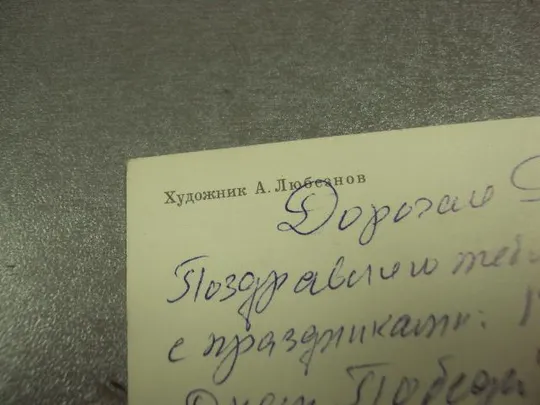 Художник А. Любезнов
Дорогая
Поздравляю тебя
с праздниками:
Днем Победы